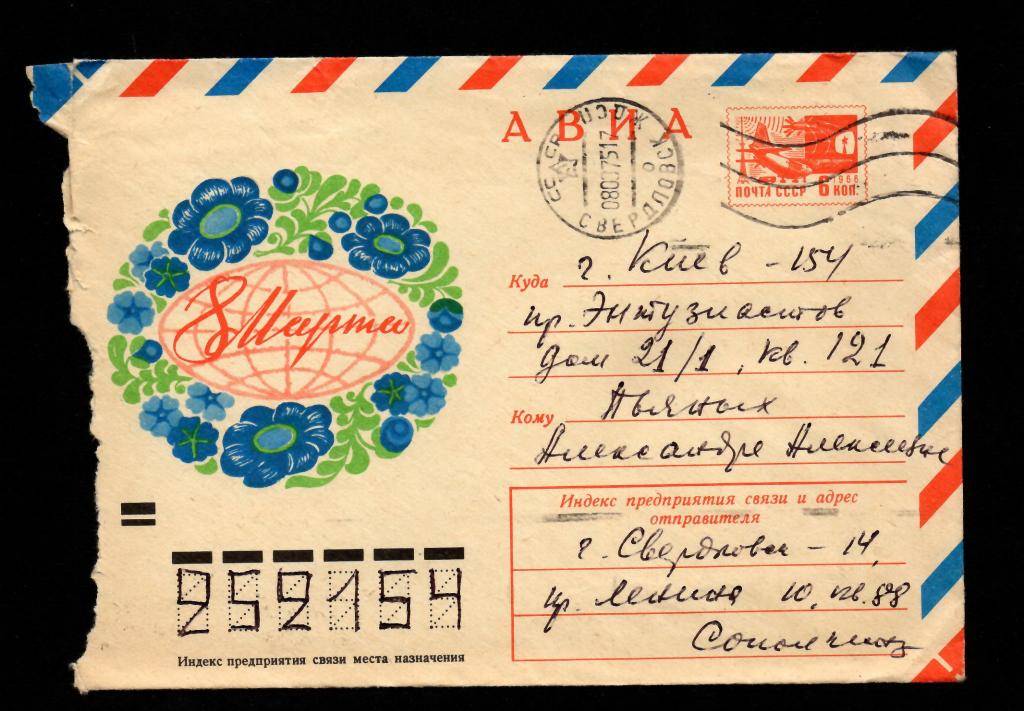 АВИА
СССР СВЕРДЛОВСК
08007517
1966
ПОЧТА СССР 6 КОП.
8 Марта
Куда г. Киев - 154
пр. Энтузиастов
дом 21/1, кв. 121
Кому Пьяных
Александре Алексеевне
Индекс предприятия связи и адрес
отправителя
г. Свердловск - 14,
пр. Ленина 10, кв. 88
252154
Индекс предприятия связи места назначения